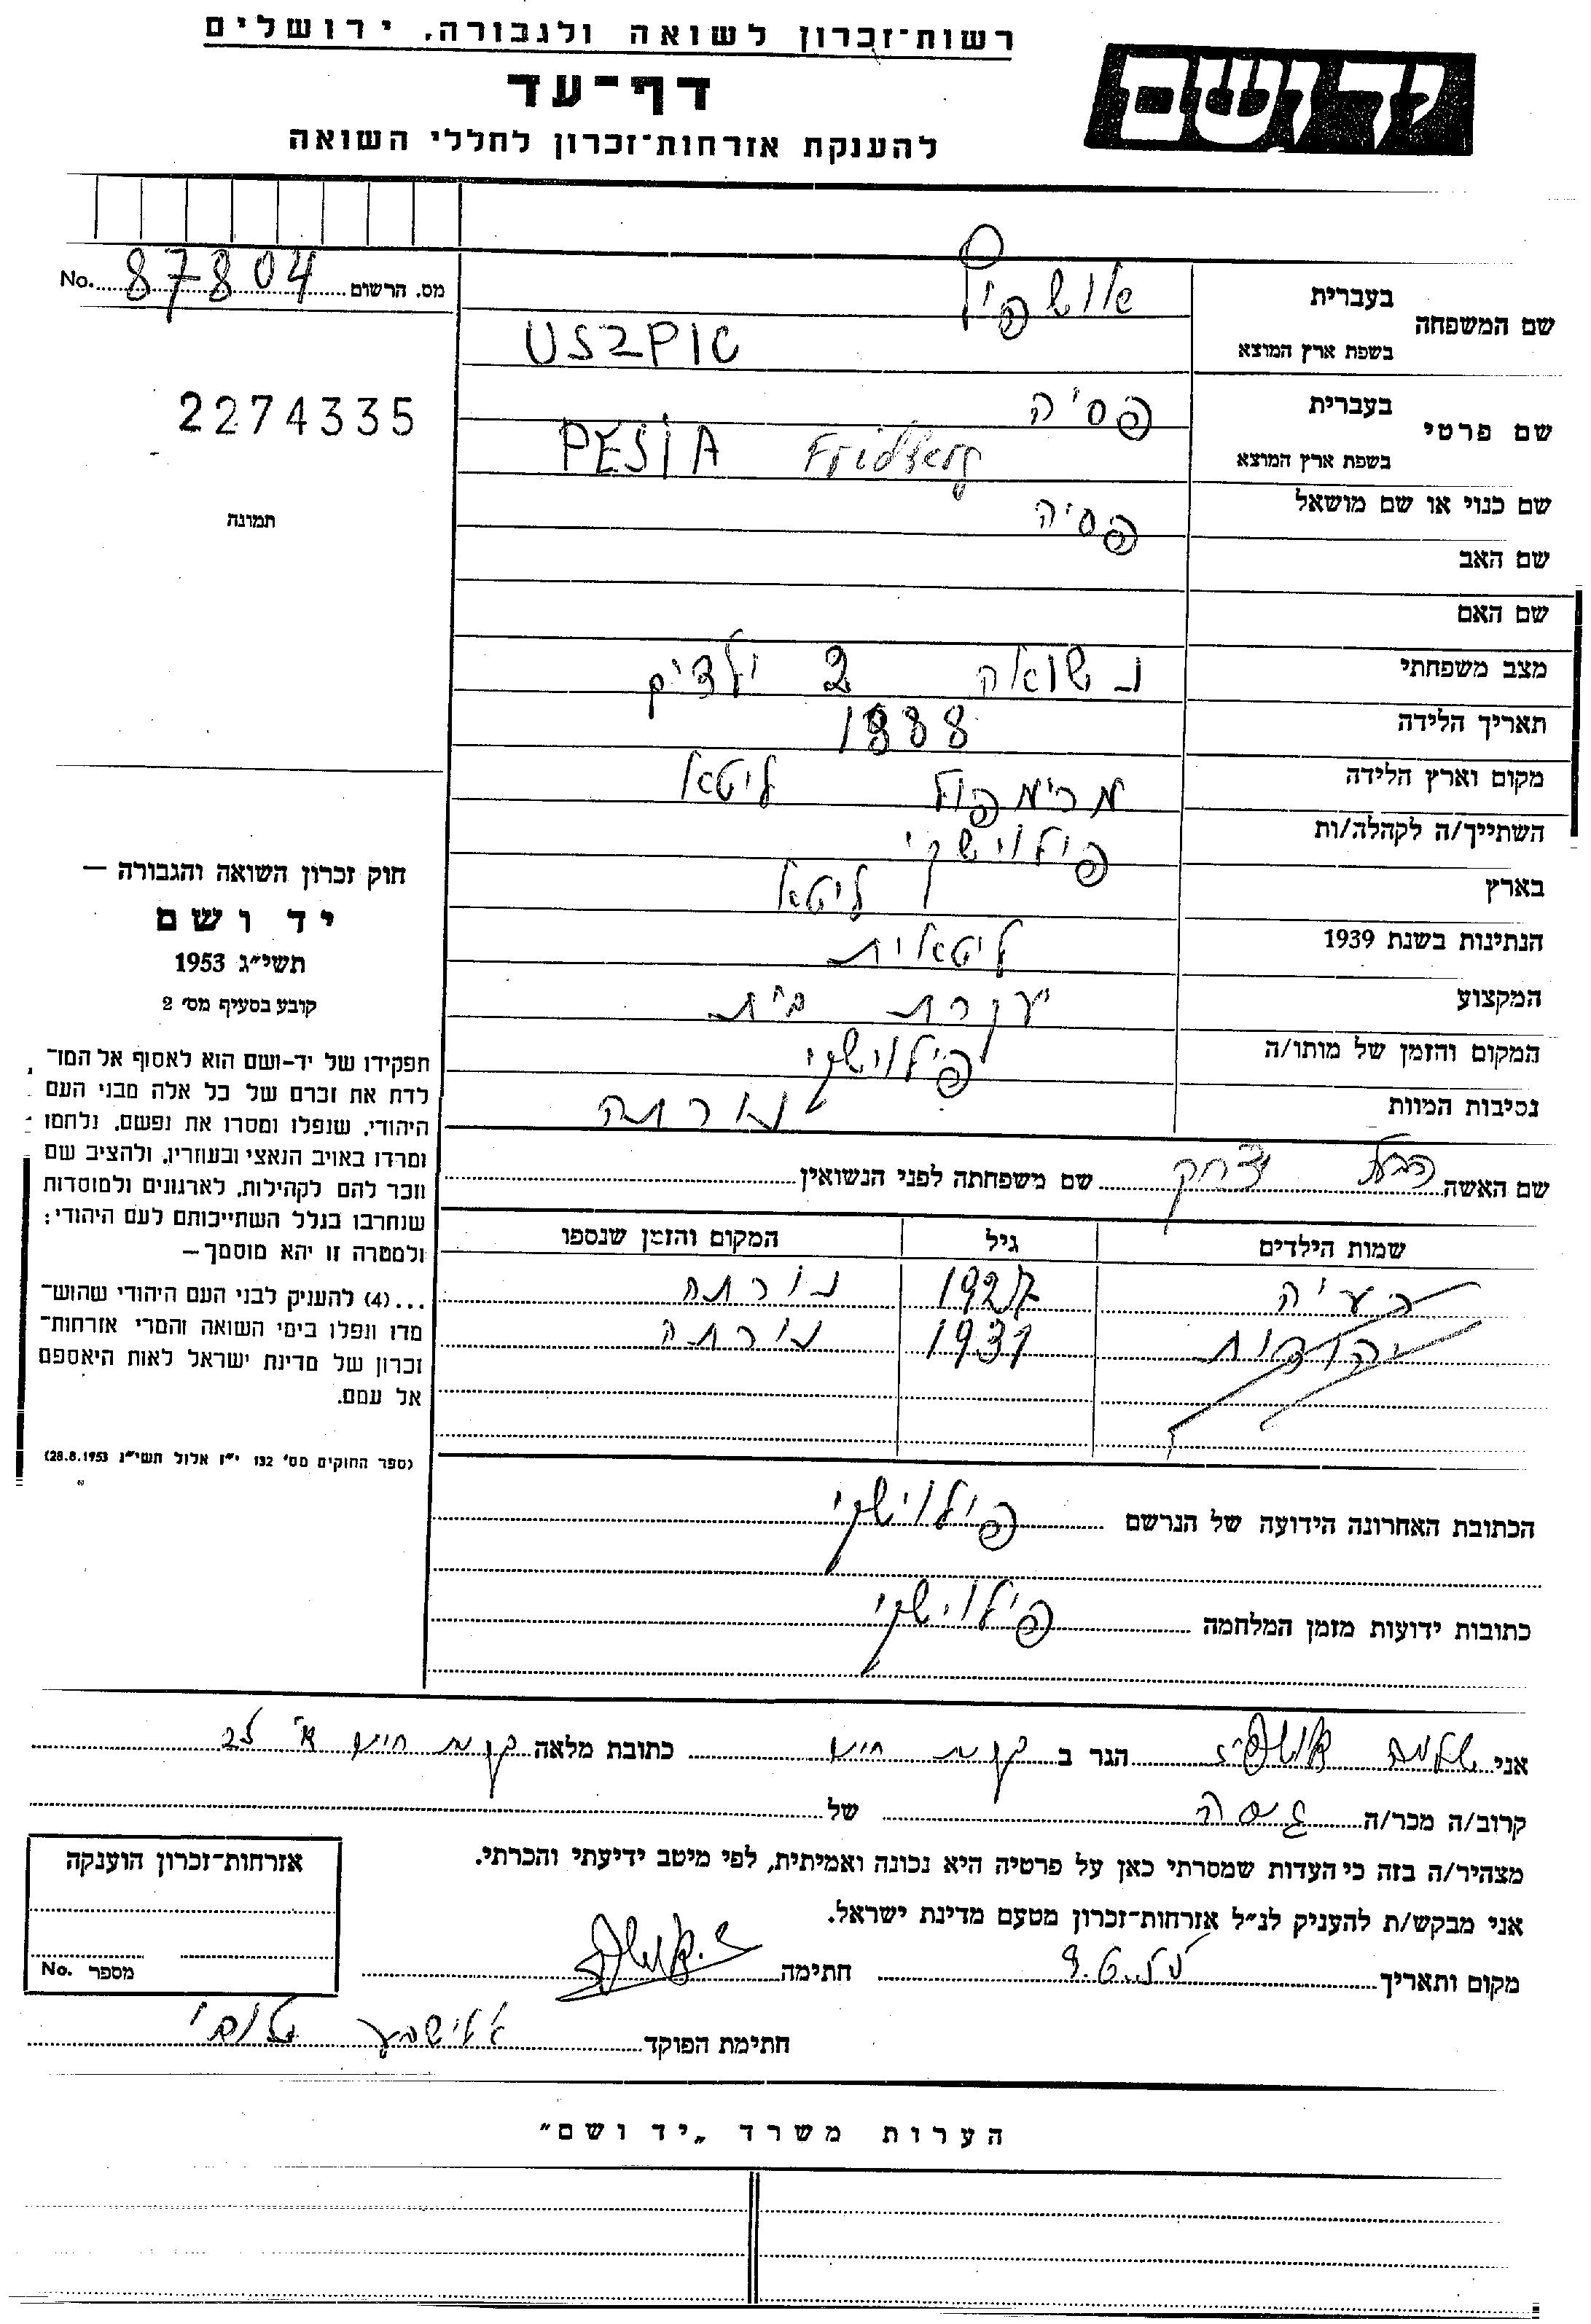 רשות־זכרון לשואה ולגבורה, ירושלים
יד ושם
דף־עד
להענקת אזרחות־זכרון לחללי השואה
מס. הרשום 87804 No.
2274335
תמונה
שם המשפחה
בעברית אושפיץ
בשפת ארץ המוצא USZPIC
שם פרטי
בעברית פסיה
בשפת ארץ המוצא PESIA Fridberg
שם כנוי או שם מושאל פסיה
שם האב
שם האם
מצב משפחתי נשואה 2 ילדים
תאריך הלידה 1888
מקום וארץ הלידה מרימפול ליטא
השתייך/ה לקהלה/ות פילוישקי
בארץ ליטא
הנתינות בשנת 1939 ליטאית
המקצוע עקרת בית
המקום והזמן של מותו/ה פילוישקי
נסיבות המוות נורתה
שם האשה הבעל יצחק שם משפחתה לפני הנשואין
שמות הילדים גיל המקום והזמן שנספו
1927 נורתה
יהודית 1931 נורתה
הכתובת האחרונה הידועה של הנרשם פילוישקי
כתובות ידועות מזמן המלחמה פילוישקי
חוק זכרון השואה והגבורה —
יד ושם
תשי״ג 1953
קובע בסעיף מס׳ 2
תפקידו של יד-ושם הוא לאסוף אל המו־
לדת את זכרם של כל אלה מבני העם
היהודי, שנפלו ומסרו את נפשם, נלחמו
ומרדו באויב הנאצי ובעוזריו, ולהציב שם
וזכר להם לקהילות, לארגונים ולמוסדות
שנחרבו בגלל השתייכותם לעם היהודי;
ולמטרה זו יהא מוסמך—
...(4) להעניק לבני העם היהודי שהוש־
מדו ונפלו בימי השואה והמרי אזרחות־
זכרון של מדינת ישראל לאות היאספם
אל עמם.
(ספר החוקים מס׳ 132 י״ז אלול תשי״ג 28.8.1953)
אני שלמה אושפיז הגר ב קרית חיים כתובת מלאה קרית חיים א׳
קרוב/ה מכר/ה גיסה של
מצהיר/ה בזה כי העדות שמסרתי כאן על פרטיה היא נכונה ואמיתית, לפי מיטב ידיעתי והכרתי.
אני מבקש/ת להעניק לנ״ל אזרחות־זכרון מטעם מדינת ישראל.
מקום ותאריך חתימה
חתימת הפוקד אלישבע
אזרחות־זכרון הוענקה
מספר No.
הערות משרד „יד ושם״